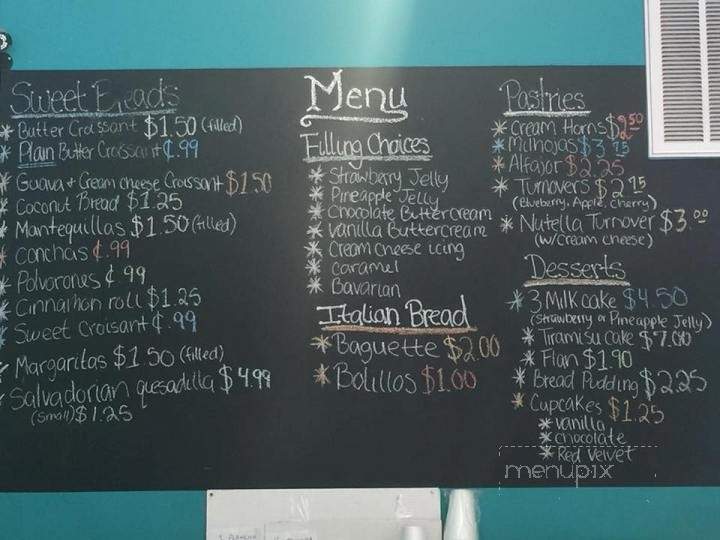 Sweet Breads
* Butter Croissant $1.50 (filled)
* Plain Butter Croissant ¢.99
* Guava & Cream cheese Croissant $1.50
* Coconut Bread $1.25
* Mantequillas $1.50 (filled)
* Conchas ¢.99
* Polvorones ¢.99
* Cinnamon roll $1.25
* Sweet Croisant ¢.99
* Margaritas $1.50 (filled)
* Salvadorian quesadilla $4.99
(small) $1.25
Menu
Filling Choices
* Strawberry Jelly
* Pineapple Jelly
* Chocolate Buttercream
* Vanilla Buttercream
* Cream cheese icing
* Caramel
* Bavarian
Italian Bread
* Baguette $2.00
* Bolillos $1.00
Pastries
* Cream Horns $2.50
* Milhojas $3.75
* Alfajor $2.25
* Turnovers $2.75
(Blueberry, Apple, Cherry)
* Nutella Turnover $3.00
(w/cream cheese)
Desserts
* 3 Milk cake $4.50
(Strawberry or Pineapple Jelly)
* Tiramisu cake $7.00
* Flan $1.90
* Bread Pudding $2.25
* Cupcakes $1.25
* vanilla
* chocolate
* Red Velvet
menupix